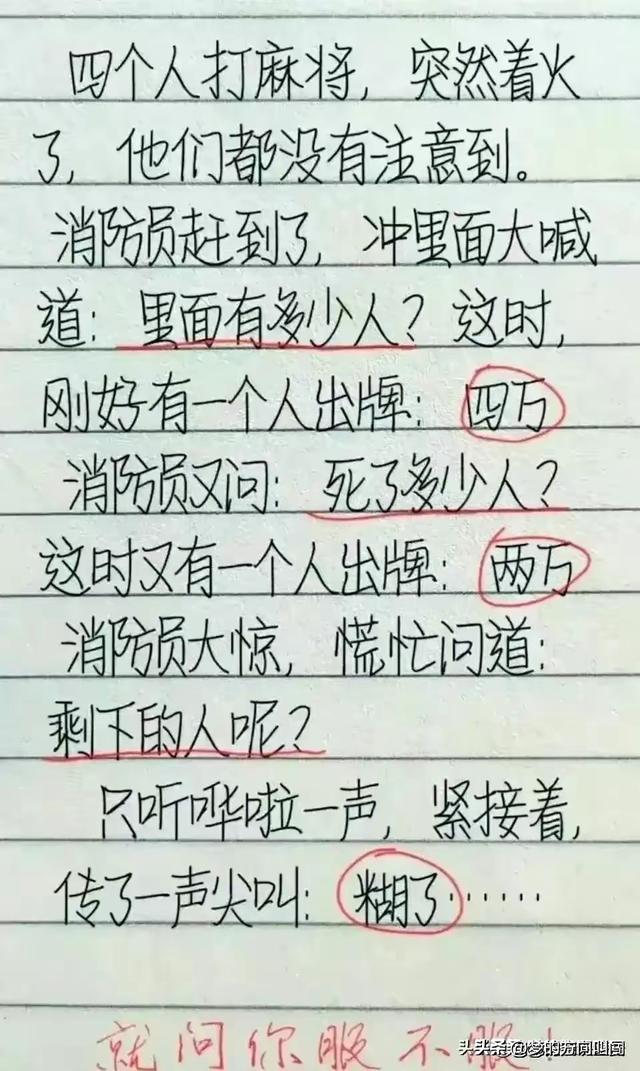 四个人打麻将，突然着火
了，他们都没有注意到。
消防员赶到了，冲里面大喊
道：里面有多少人？这时，
刚好有一个人出牌：四万
消防员又问：死了多少人？
这时又有一个人出牌：两万
消防员大惊，慌忙问道：
剩下的人呢？
只听哗啦一声，紧接着，
传了一声尖叫：糊了……
就问你服不服！
头条